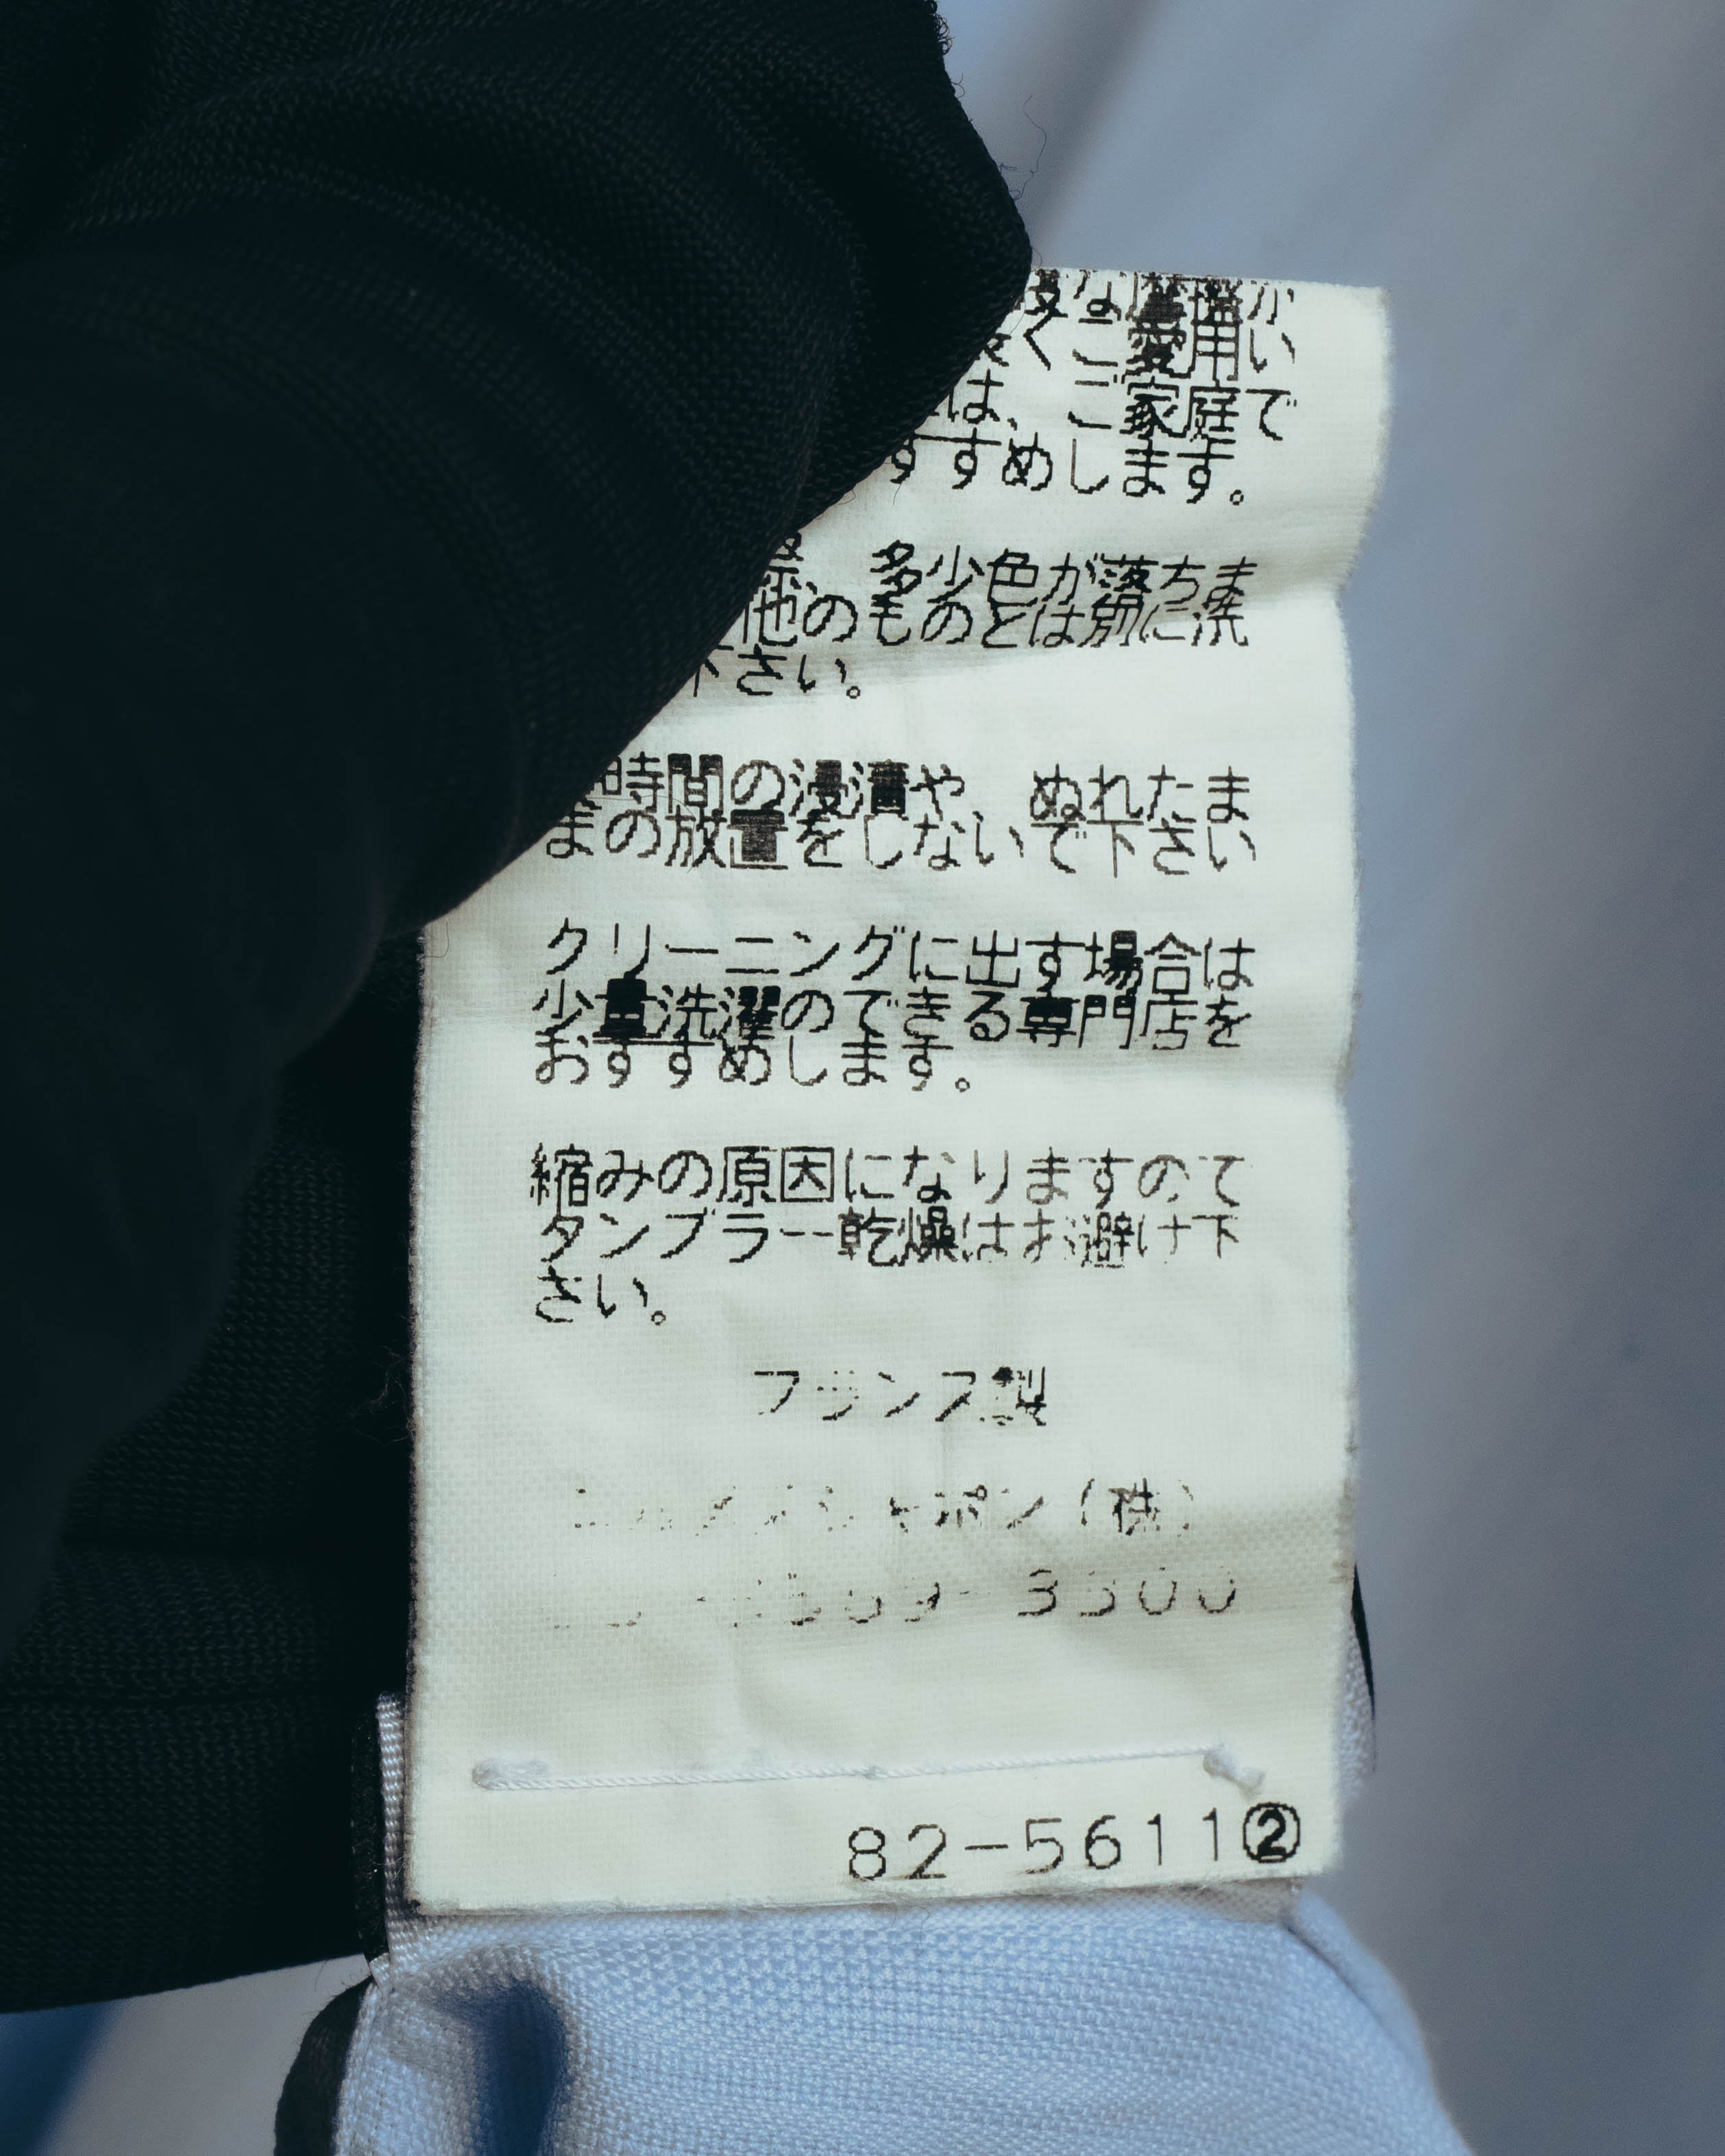 な摩擦が
くご愛用い
は、ご家庭で
すすめします。
、多少色が落ちま
他のものとは別に洗
下さい。
時間の浸漬や、ぬれたま
まの放置をしないで下さい
クリーニングに出す場合は
少量洗濯のできる専門店を
おすすめします。
縮みの原因になりますので
タンブラー乾燥はお避け下
さい。
フランス製
ャポン(株)
3300
82-5611②